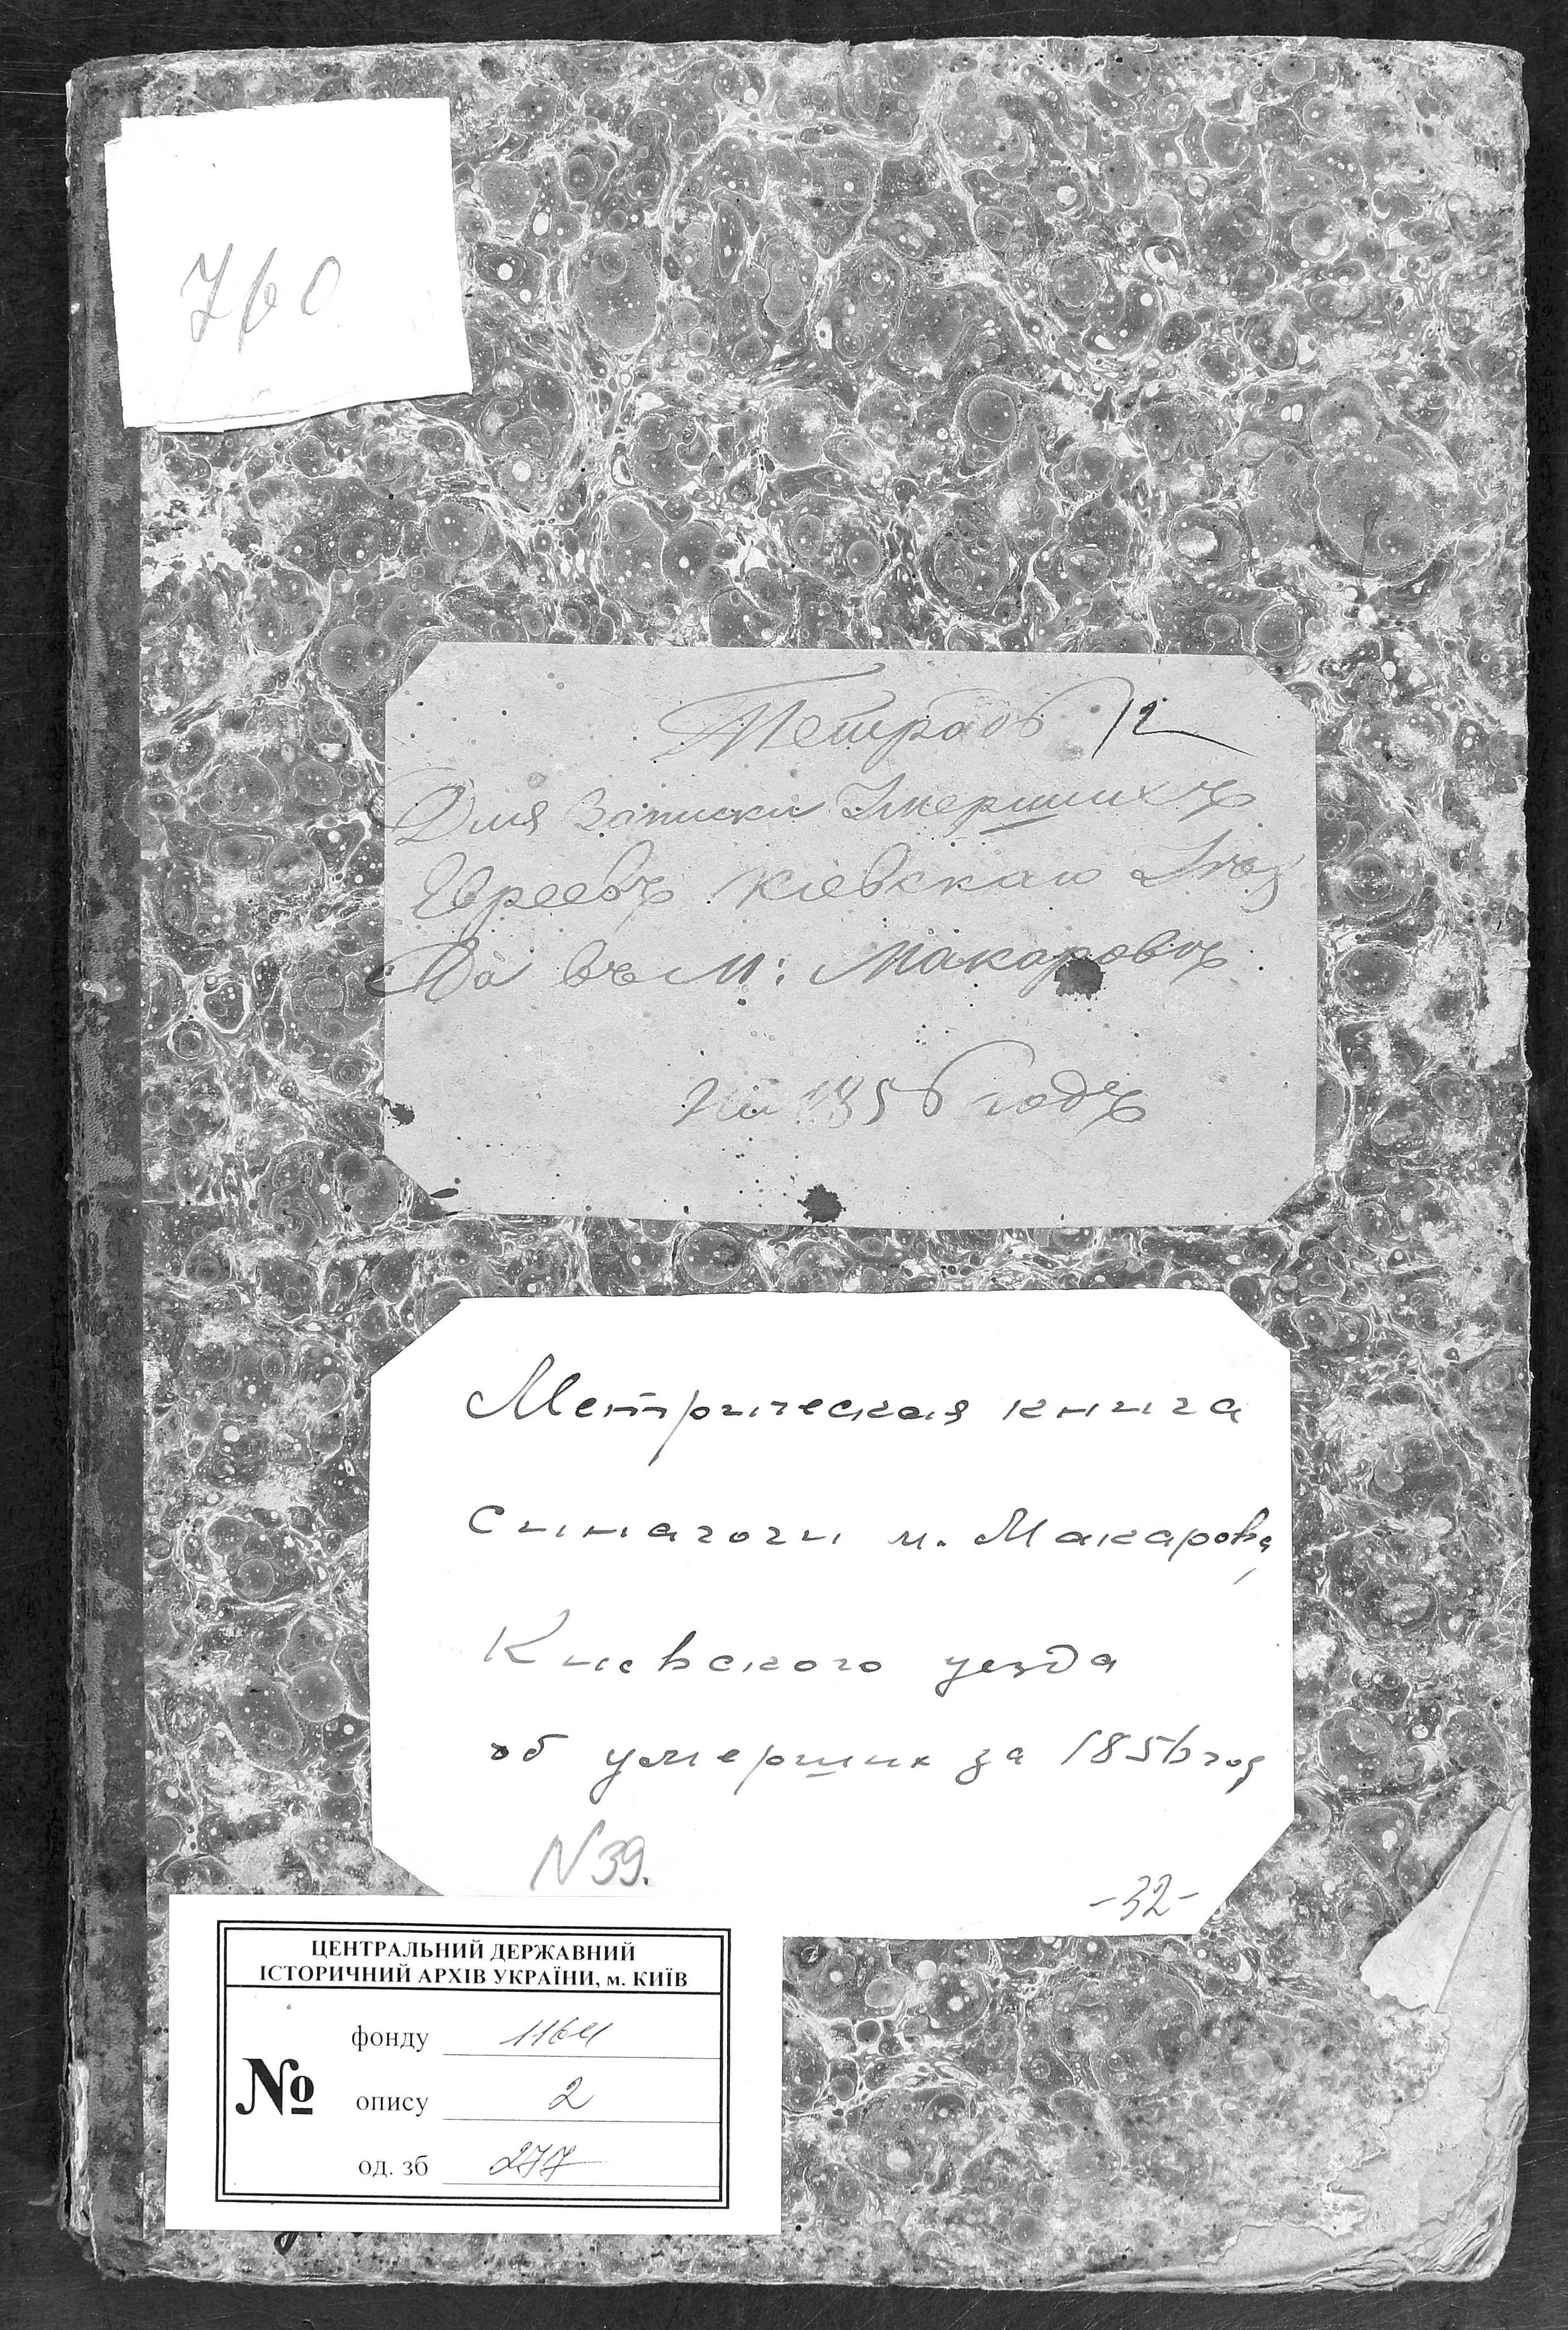 760
Тетрадь 12
Для Записки Умершихъ
Евреевъ Кіевскаго Уѣз
да въ М: Макаровъ
На 1856 годъ
Метрическая книга
синагоги м. Макарова,
Киевского уезда
об умерших за 1856 год
N 39.
-32-
ЦЕНТРАЛЬНИЙ ДЕРЖАВНИЙ
ІСТОРИЧНИЙ АРХІВ УКРАЇНИ, м. КИЇВ
№
фонду 1164
опису 2
од. зб 277